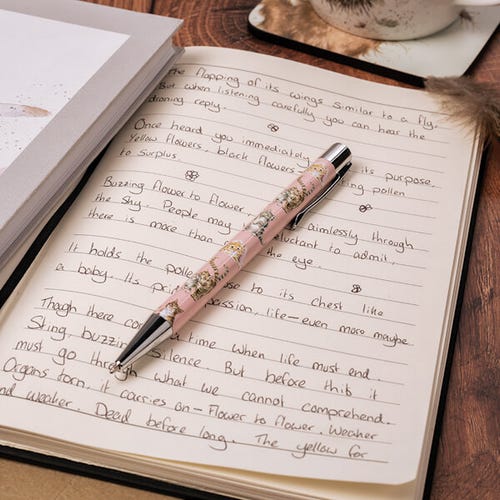 The flapping of its wings similar to a fly.
But when listening carefully you can hear the
droning reply.
Once heard you immediately its purpose.
Yellow flowers, black flowers pollen
to surplus.
Buzzing flower to flower, aimlessly through
the sky. People may reluctant to admit.
there is more than the eye.
It holds the pollen to its chest like
a baby. Its passion, life-even more maybe
Though there time when life must end.
Sting, buzzing silence. But before this it
must go through what we cannot comprehend.
Organs torn, it carries on - flower to flower. Weaker
and weaker. Dead before long. The yellow for